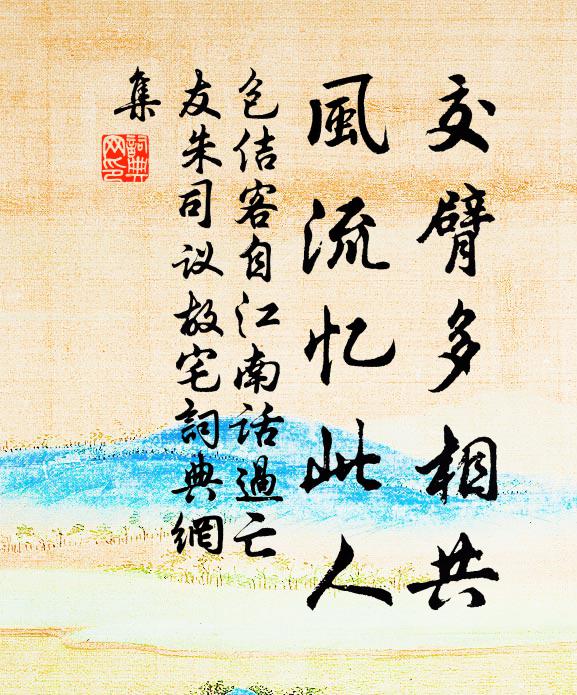 交臂多相共
風流忆此人
包佶客自江南話過亡
友朱司议故宅詞典網
集
詞典网印